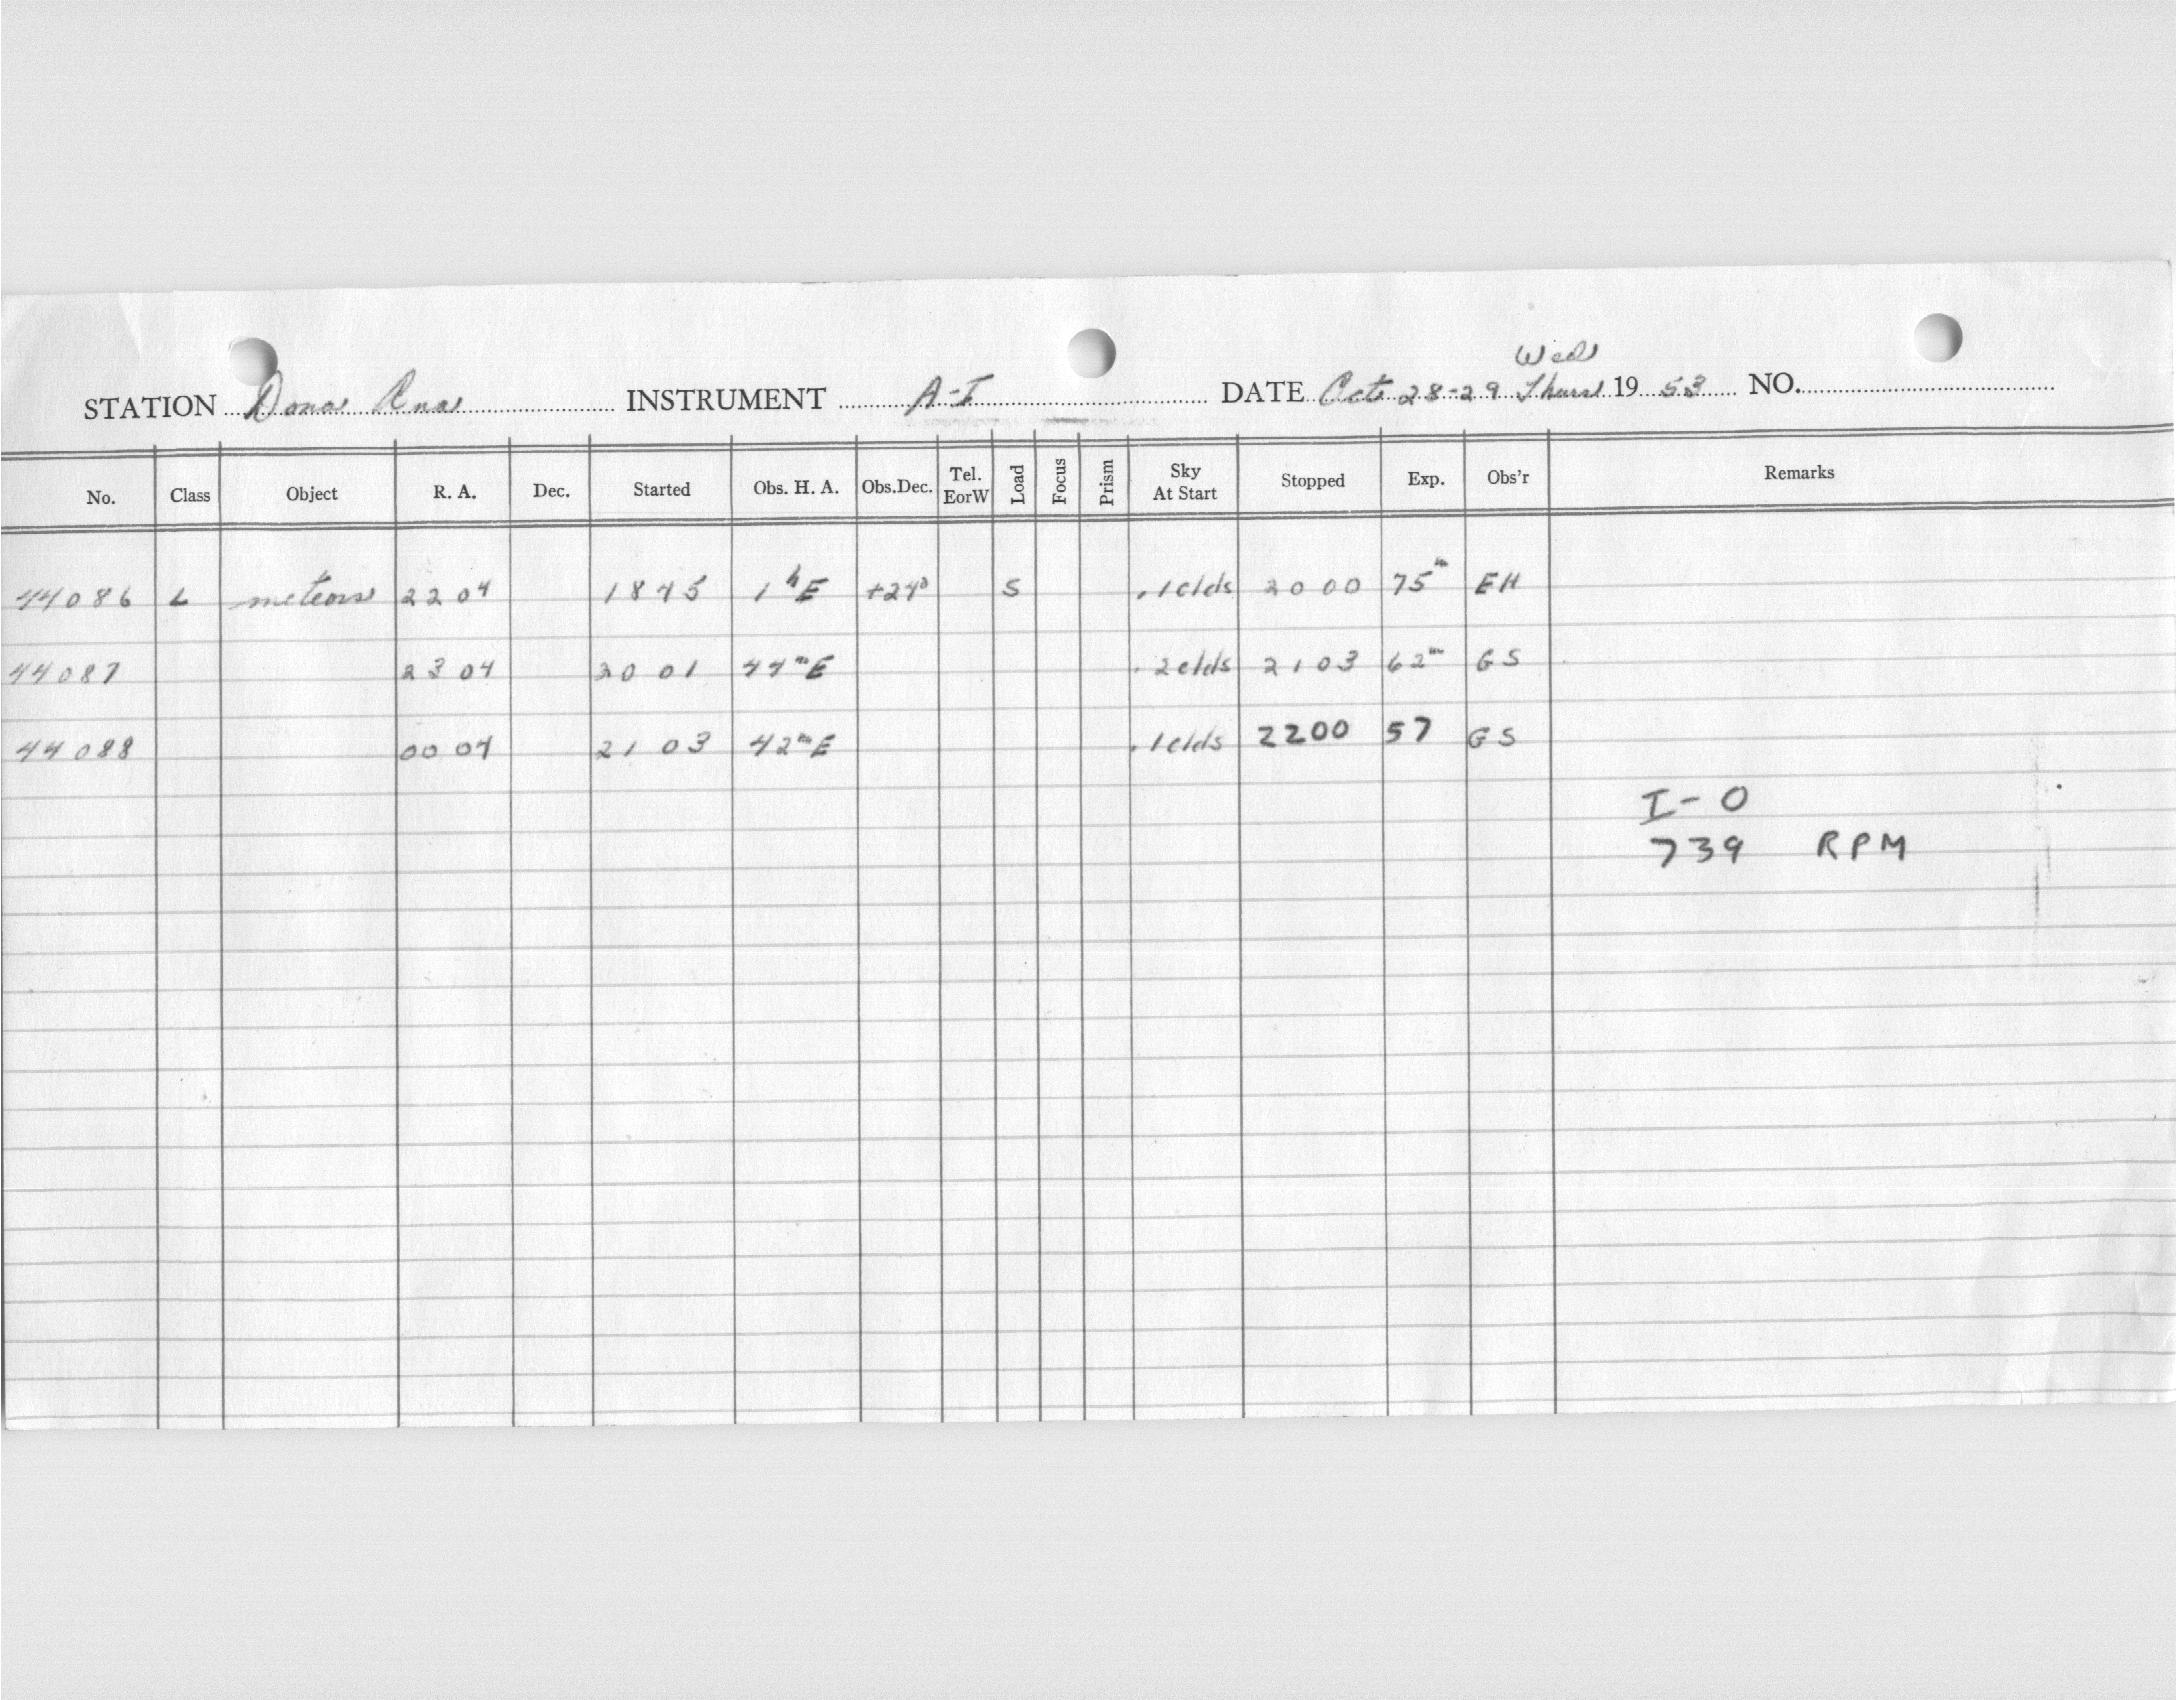 Wed
STATION Dona Ana INSTRUMENT A-I DATE Oct 28-29 Thurs 1953 NO.
No. Class Object R. A. Dec. Started Obs. H. A. Obs.Dec. Tel. EorW Load Focus Prism Sky At Start Stopped Exp. Obs'r Remarks
44086 L meteors 22 04 1845 1hE +24° S .1 clds 2000 75m EH
44087 23 04 20 01 44mE .2 clds 2103 62m GS
44088 00 04 21 03 42mE .1 clds 2200 57 GS
I-O
739 RPM